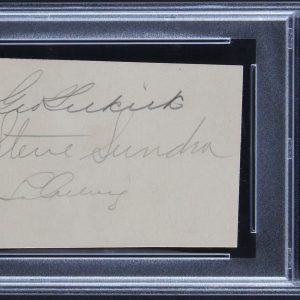 Geo Selkirk
Steve Sundra